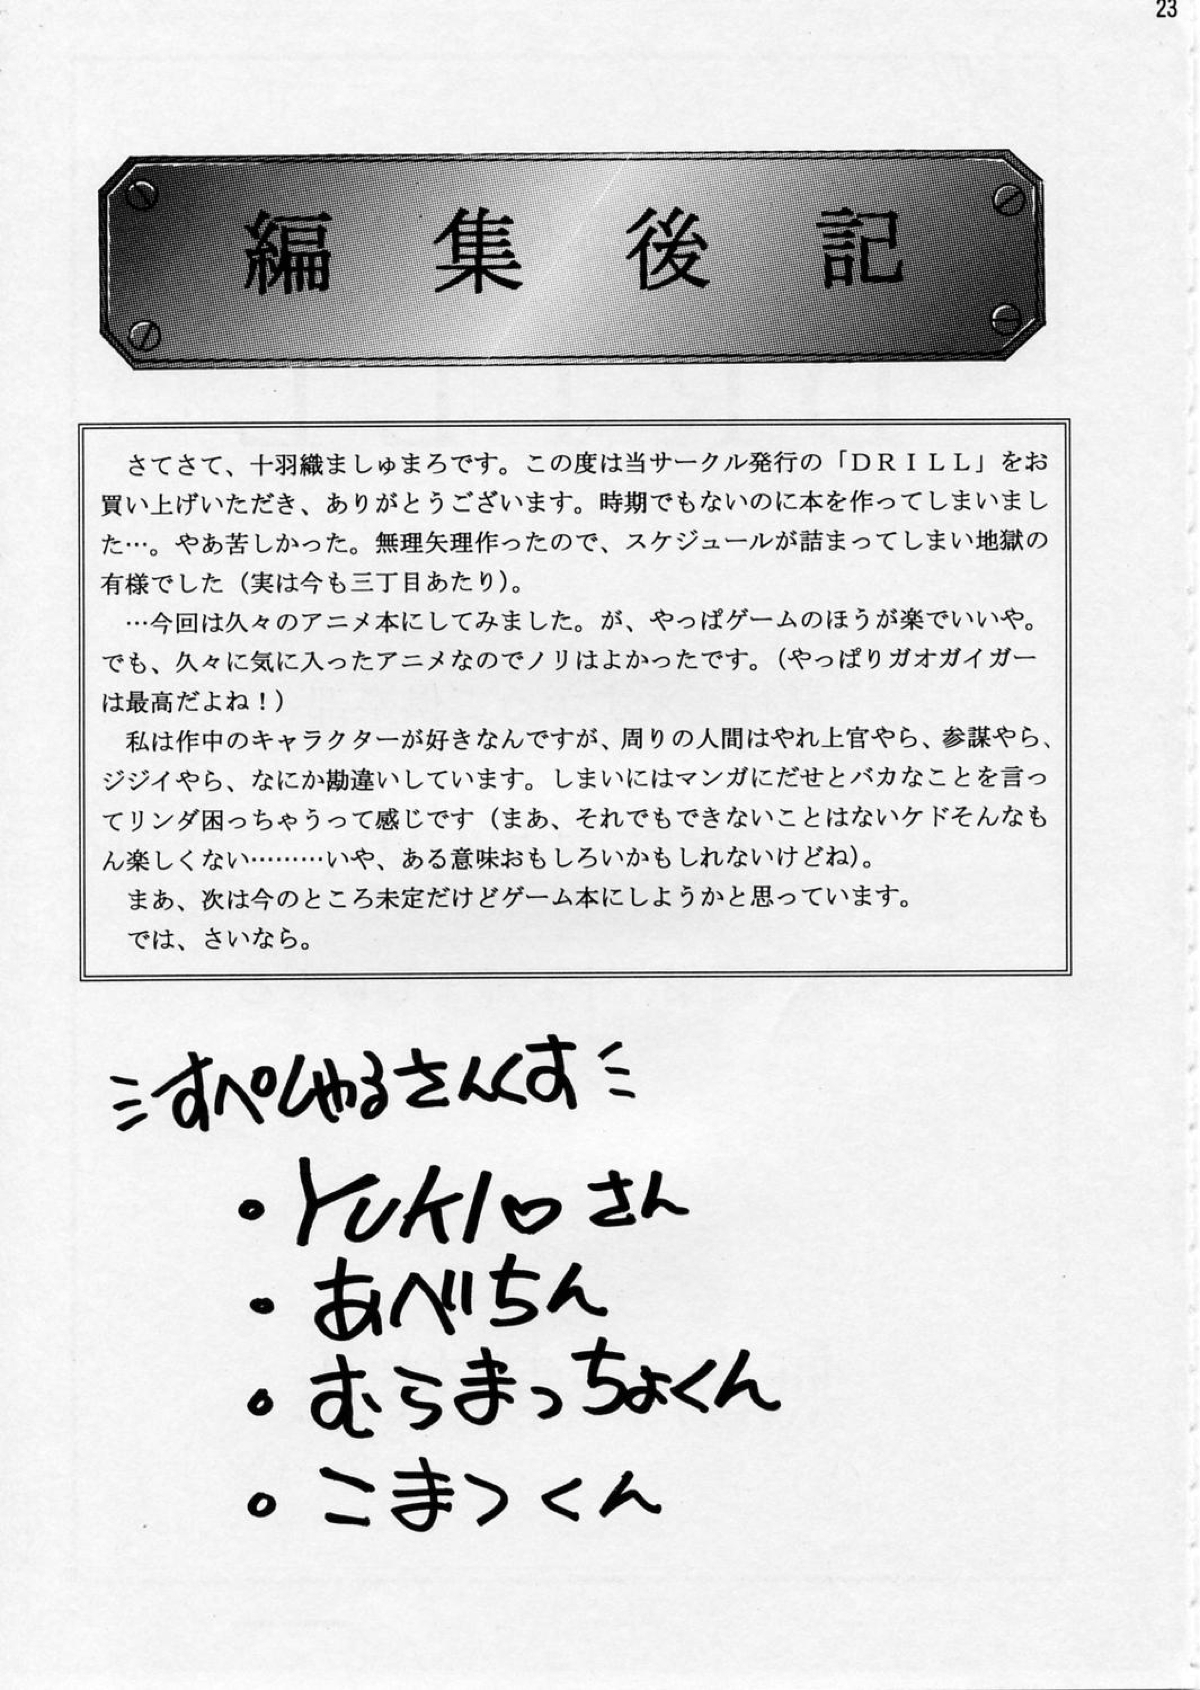 23
編集後記
さてさて、十羽織ましゅまろです。この度は当サークル発行の「DRILL」をお
買い上げいただき、ありがとうございます。時期でもないのに本を作ってしまいまし
た…。やあ苦しかった。無理矢理作ったので、スケジュールが詰まってしまい地獄の
有様でした（実は今も三丁目あたり）。
…今回は久々のアニメ本にしてみました。が、やっぱゲームのほうが楽でいいや。
でも、久々に気に入ったアニメなのでノリはよかったです。（やっぱりガオガイガー
は最高だよね！）
私は作中のキャラクターが好きなんですが、周りの人間はやれ上官やら、参謀やら、
ジジイやら、なにか勘違いしています。しまいにはマンガにだせとバカなことを言っ
てリンダ困っちゃうって感じです（まあ、それでもできないことはないケドそんなも
ん楽しくない………いや、ある意味おもしろいかもしれないけどね）。
まあ、次は今のところ未定だけどゲーム本にしようかと思っています。
では、さいなら。
すぺしゃるさんくす
・YUKI♡さん
・あべちん
・むらまっちょくん
・こまつくん